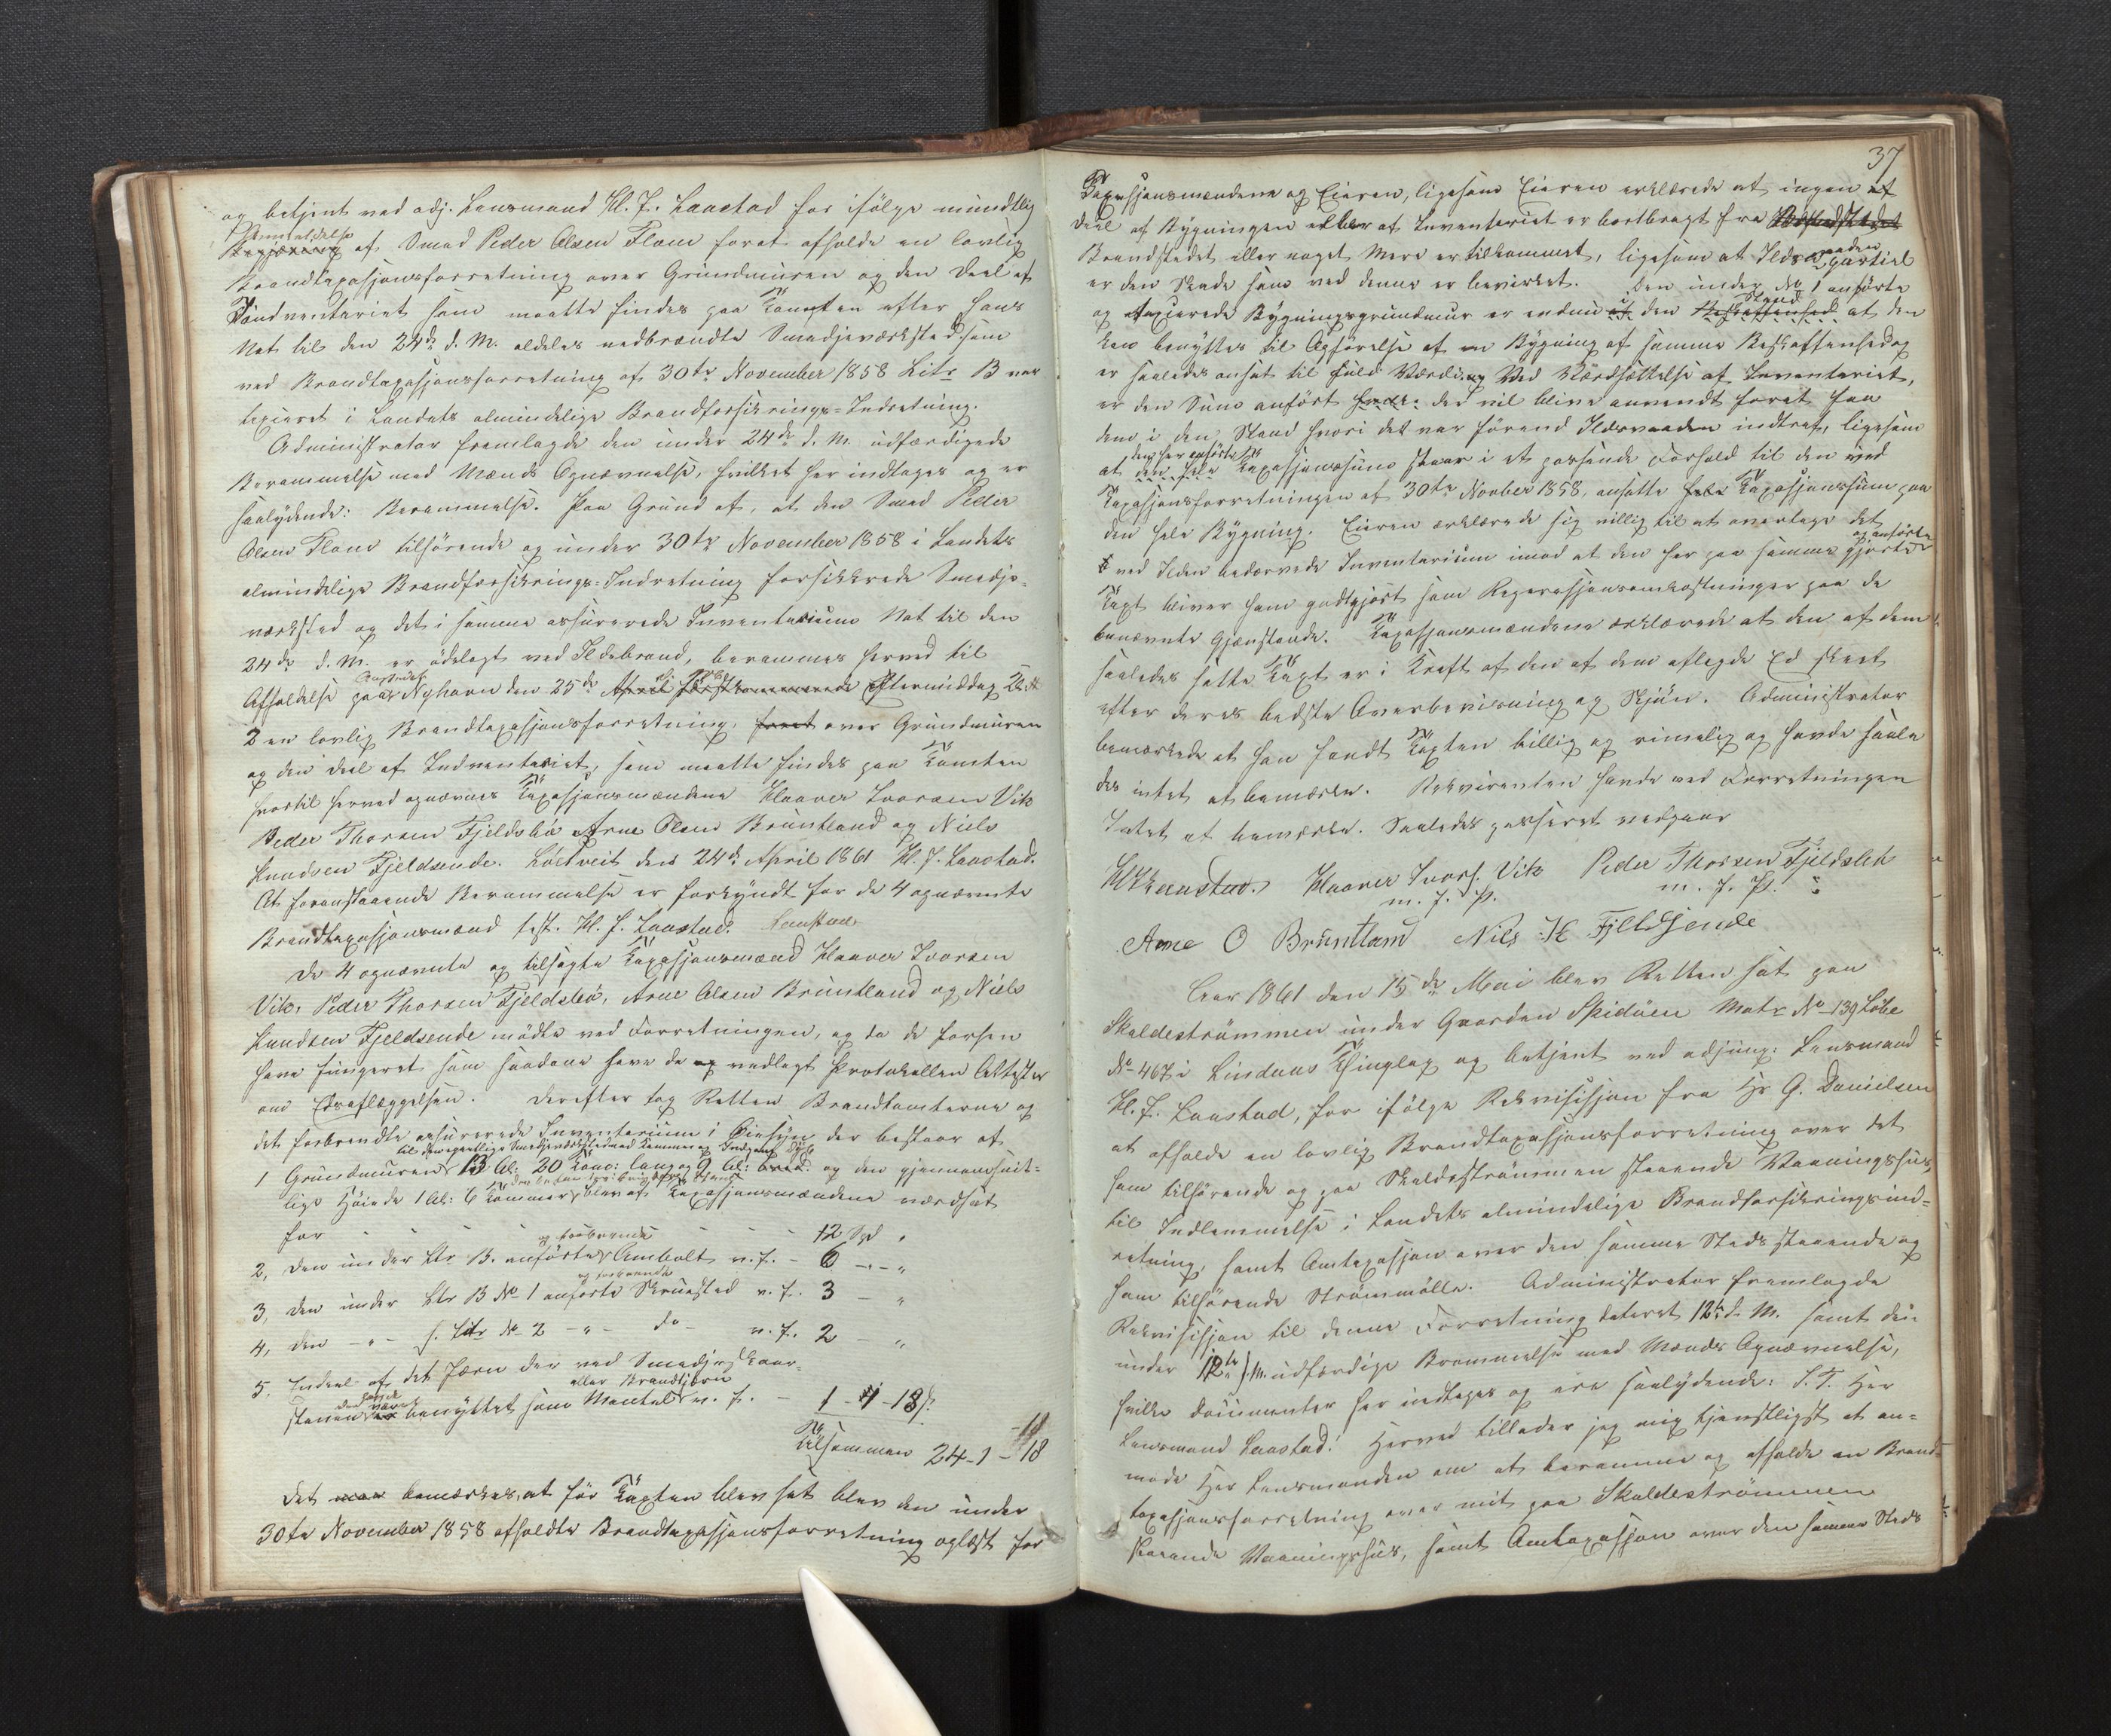 og betjent ved adj. Lensmand H. J. Laastad for ifölge mundtlig
Anmeldelse
Begjæring af Smed Peder Olsen Flem foret afholde en lovlig
Brandtaxasjonsforretning over Grundmuren og den Deel af
Indventariet som maatte findes paa Tomten efter hans
Nat til den 24de d. M. aldeles nedbrændte Smedjeværksted som
ved Brandtaxasjonsforretning af 30te November 1858 Litr B var
taxeret i Landets almindelige Brandforsikrings-Indretning.
Administrator fremlagde den under 24de d. M. udfærdigede
Berammelse med Mænds Opnævnelse, hvilket her indtages og er
saalydende: Berammelse. Paa Grund af, at den Smed Peder
Olsen Flem tilhörende og under 30te November 1858 i Landets
almindelige Brandforsikrings-Indretning forsikkrede Smedje-
værksted og det i samme assurerede Inventarium Nat til den
24de d. M. er ödelagt ved Ildebrand, berammes herved til
Afholdelse paa Nyhavn den 25de April förstkommende Eftermiddag Kl.
2 en lovlig Brandtaxasjonsforretning, foret over Grundmuren
og den Deel af Indventariet, som maatte findes paa Tomten
hvortil herved opnævnes Taxasjonsmændene Haaver Ivorsen Vik
Peder Thorsen Fjeldsbö Arne Olsen Bruntland og Niels
Knudsen Fjeldsende. Löetveit den 24de April 1861 H. J. Laastad.
At foranstaaende Berammelse er forkyndt for de 4 opnævnte
Brandtaxasjonsmænd test. H. J. Laastad. Laastad
De 4 opnævnte og tilsagte Taxasjonsmænd Haaver Ivorsen
Vik, Peder Thorsen Fjeldsbö, Arne Olsen Bruntland og Niels
Knudsen Fjeldsende mödte ved Forretningen, og da de forhen
have fungeret som saadane have de og vedlagt Protokollen Attester
om Edsaflæggelsen. Derefter tog Retten Brandtomterne og
det forbrendte assurerede Inventarium i Öiesyn der bestaar af
til den egentlige Smedjeværksted med Kammer og Indgang
1 Grundmuren 13 Al: 20 Tom: lang og 9 Al: bred og den gjennemsnit-
lige Höide 1 Al: 6 Tommer blev af Taxasjonsmændene værdsat
for 12 Spd "
og forbrændte
2, den under Ltr. B. anförte Ambolt v. f. - 6 - "
og forbrændte
3, den under Ltr B No 1 anförte Skruested v. f. 3 - "
4, den - " - s. Litr No 2 - " - do v. f. 2 - "
5. Endeel af det Jern der ved Smedje
eller Brandtjern
stenen har været benyttet som Mantel v. f. - 1 - 18 s
Tilsammen 24-1-18
Det maa bemærkes, at för Taxten blev sat blev den under
30te November 1858 afholdte Brandtaxasjonsforretning oplæst for
37
Taxasjonsmændene og Eieren, ligesom Eieren erklærede at ingen af
Deel af Bygningen eller af Inventariet er bortbragt fra
Brandstedet eller noget Mere er tilkommet, ligesom at Ildsvaaden partiel
er den Skade som ved denne er bevirket. Den under No 1 anförte
Stand
og taxerede Bygningsgrundmur er endnu i den Beskaffenhed at den
kan benyttes til Opförelse af en Bygning af samme Beskaffenhed og
er saaledes ansat til fuld Værdi, og ved Værdsættelse af Inventariet,
er den Sum anfört der vil blive anvendt foret faa
dem i den Stand hvori det var förend Ildsvaaden indtraf, ligesom
den her anförte
at den hele Taxasjonssum staar i et passende Forhold til den ved
Taxasjonsforretningen af 30te Novber 1858, ansatte hele Taxasjonssum paa
den hele Bygning. Eieren erklærede sig villig til at overtage det
og anförte
ved Ilden bedærvede Inventarium imod at den her paa samme gjorte
Taxt bliver ham godtgjort som Reparasjonsomkostninger paa de
benævnte Gjenstande. Taxasjonsmændene erklærede at den af dem
saaledes satte Taxt er i Kraft af den af dem aflagde Ed skeet
efter deres bedste Overbevisning og Skjön. Administrator
bemærkede at han fandt Taxten billig og rimelig og havde saale
des intet at bemærke. Rekvirenten havde ved Forretningen
Intet at bemærke. Saaledes passeret vedgaar
HJLaastad. Haaver Ivors. Vik Peder Thorsen Fjeldsbö
m. f. P. m. f. P.
Arne O Bruntland Nils K Fjeldsende
Aar 1861 den 15de Mai blev Retten sat paa
Skaldeströmmen under Gaarden Spidöen Matr No 139 Löbe
No 467 i Lindaas Thinglag og betjent ved adjung: Lensmand
H. J. Laastad, for ifölge Rekvisisjon fra Hr G. Danielsen
at afholde en lovlig Brandtaxasjonsforretning over det
ham tilhörende og paa Skaldeströmmen staaende Vaaningshus,
til Indlemmelse i Landets almindelige Brandforsikringsind-
retning, samt Omtaxasjon over den samme Steds staaende og
ham tilhörende Strömmölle. Administrator fremlagde
Rekvisisjon til denne Forretning dateret 12te d. M. samt den
under 12te d. M. udfærdige Brammelse med Mænds Opnævnelse,
hvilke Documenter her indtages og ere saalydende: S. T. Her
Lensmand Laastad! Herved tillader jeg mig tjenstligst at an-
mode Her Lensmanden om at beramme og afholde en Brand-
taxasjonsforretning over mit paa Skaldeströmmen
staaende Vaaningshus, samt Omtaxasjon over den samme Steds